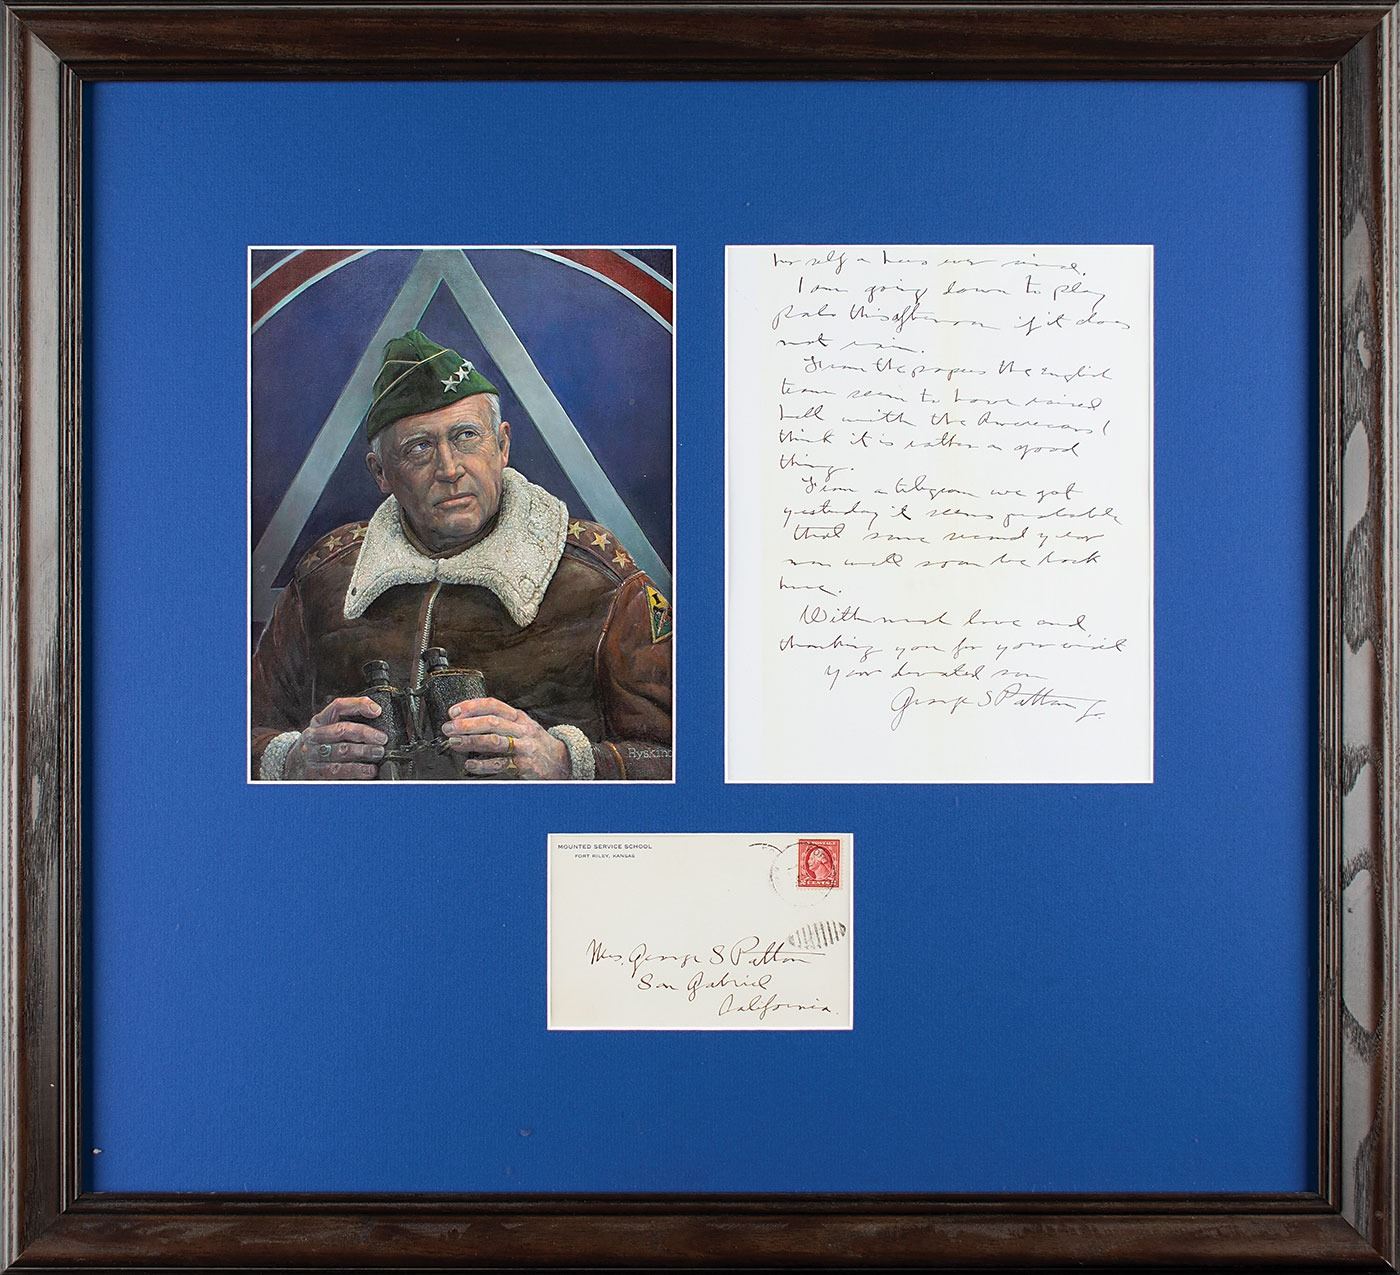 Ryskind
herself a hus ever since.
I am going down to play
Polo this afternoon if it does
not rain.
From the papers the English
team seem to have raised
hell with the Americans I
think it is rather a good
thing.
From a telegram we got
yesterday it seems probable
that some second year
men will soon be back
here.
With much love and
thanking you for your visit
Your devoted son
George S Patton Jr.
MOUNTED SERVICE SCHOOL
FORT RILEY, KANSAS
2 CENTS 2
Mrs. George S Patton
San Gabriel
California.